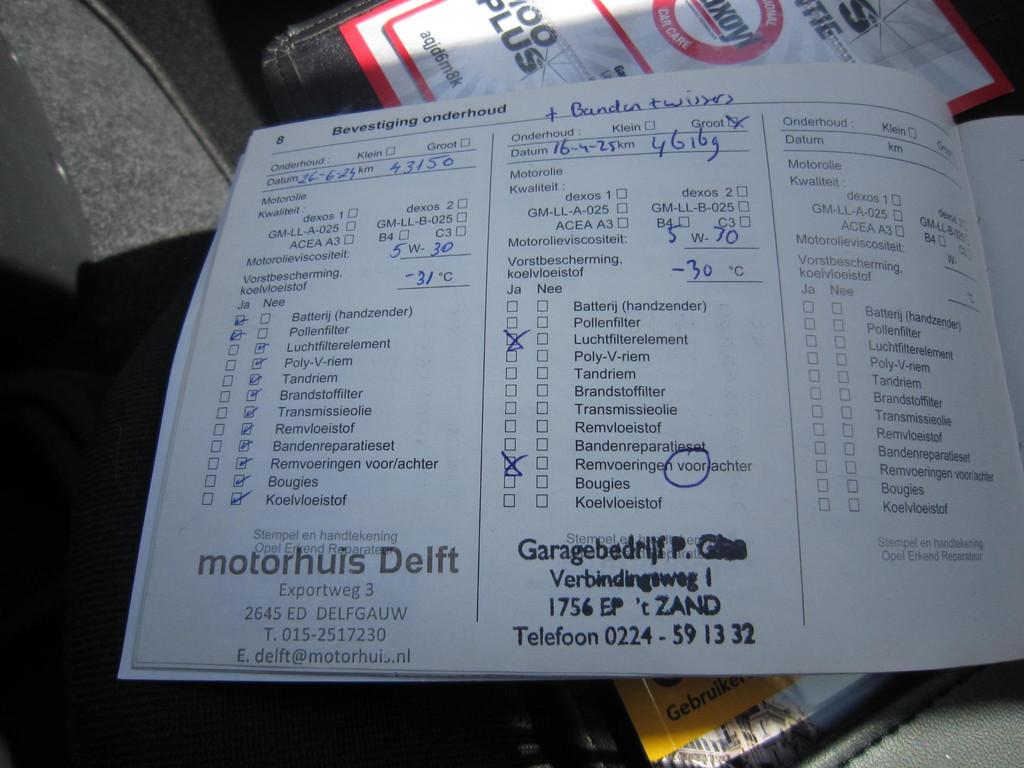 aqjd6m8k
PLUS
CAR CARE
8
Bevestiging onderhoud
+ Banden + wissers
Onderhoud : Klein Groot
Datum 26-6-24 km 43150
Motorolie
Kwaliteit :
dexos 1 dexos 2
GM-LL-A-025 GM-LL-B-025
ACEA A3 B4 C3
Motorolieviscositeit: 5 W- 30
Vorstbescherming,
koelvloeistof -31 °C
Ja Nee
Batterij (handzender)
Pollenfilter
Luchtfilterelement
Poly-V-riem
Tandriem
Brandstoffilter
Transmissieolie
Remvloeistof
Bandenreparatieset
Remvoeringen voor/achter
Bougies
Koelvloeistof
Stempel en handtekening
Opel Erkend Reparateur
motorhuis Delft
Exportweg 3
2645 ED DELFGAUW
T. 015-2517230
E. delft@motorhuis.nl
Onderhoud : Klein Groot
Datum 16-4-25 km 46169
Motorolie
Kwaliteit :
dexos 1 dexos 2
GM-LL-A-025 GM-LL-B-025
ACEA A3 B4 C3
Motorolieviscositeit: 5 W- 30
Vorstbescherming,
koelvloeistof -30 °C
Ja Nee
Batterij (handzender)
Pollenfilter
Luchtfilterelement
Poly-V-riem
Tandriem
Brandstoffilter
Transmissieolie
Remvloeistof
Bandenreparatieset
Remvoeringen voor/achter
Bougies
Koelvloeistof
Stempel en handtekening
Garagebedrijf P.
Verbindingsweg 1
1756 EP 't ZAND
Telefoon 0224 - 59 13 32
Onderhoud : Klein Groot
Datum km
Motorolie
Kwaliteit :
dexos 1 dexos 2
GM-LL-A-025 GM-LL-B-025
ACEA A3 B4 C3
Motorolieviscositeit: W-
Vorstbescherming,
koelvloeistof °C
Ja Nee
Batterij (handzender)
Pollenfilter
Luchtfilterelement
Poly-V-riem
Tandriem
Brandstoffilter
Transmissieolie
Remvloeistof
Bandenreparatieset
Remvoeringen voor/achter
Bougies
Koelvloeistof
Stempel en handtekening
Opel Erkend Reparateur